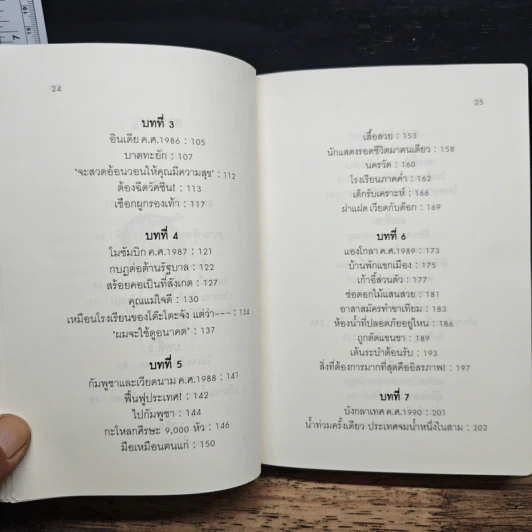 24
บทที่ 3
อินเดีย ค.ศ.1986 : 105
บาดทะยัก : 107
'จะสวดอ้อนวอนให้คุณมีความสุข' : 112
ต้องฉีดวัคซีน! : 113
เชือกผูกรองเท้า : 117
บทที่ 4
โมซัมบิก ค.ศ.1987 : 121
กบฏต่อต้านรัฐบาล : 122
สร้อยคอเป็นที่สังเกต : 127
คุณแม่ใจดี : 130
เหมือนโรงเรียนของโต๊ะโตะจัง แต่ว่า--- : 134
'ผมจะใช้ดูอนาคต' : 137
บทที่ 5
กัมพูชาและเวียดนาม ค.ศ.1988 : 141
ฟื้นฟูประเทศ! : 142
ไปกัมพูชา : 144
กะโหลกศีรษะ 9,000 หัว : 146
มือเหมือนคนแก่ : 150
25
เสื้อสวย : 153
นักแสดงรอดชีวิตมาคนเดียว : 158
นครวัด : 160
โรงเรียนภาคค่ำ : 162
เด็กรับเคราะห์ : 166
ฝาแฝด เวียดกับด๊อก : 169
บทที่ 6
แองโกลา ค.ศ.1989 : 173
บ้านพักแขกเมือง : 175
เก้าอี้ส่วนตัว : 177
ช่อดอกไม้แสนสวย : 181
อาสาสมัครทำขาเทียม : 183
ห้องน้ำที่ปลอดภัยอยู่ไหน : 186
ถูกตัดแขนขา : 189
เต้นระบำต้อนรับ : 193
สิ่งที่ต้องการมากที่สุดคืออิสรภาพ! : 197
บทที่ 7
บังกลาเทศ ค.ศ.1990 : 201
น้ำท่วมครั้งเดียว ประเทศจมน้ำหนึ่งในสาม : 202